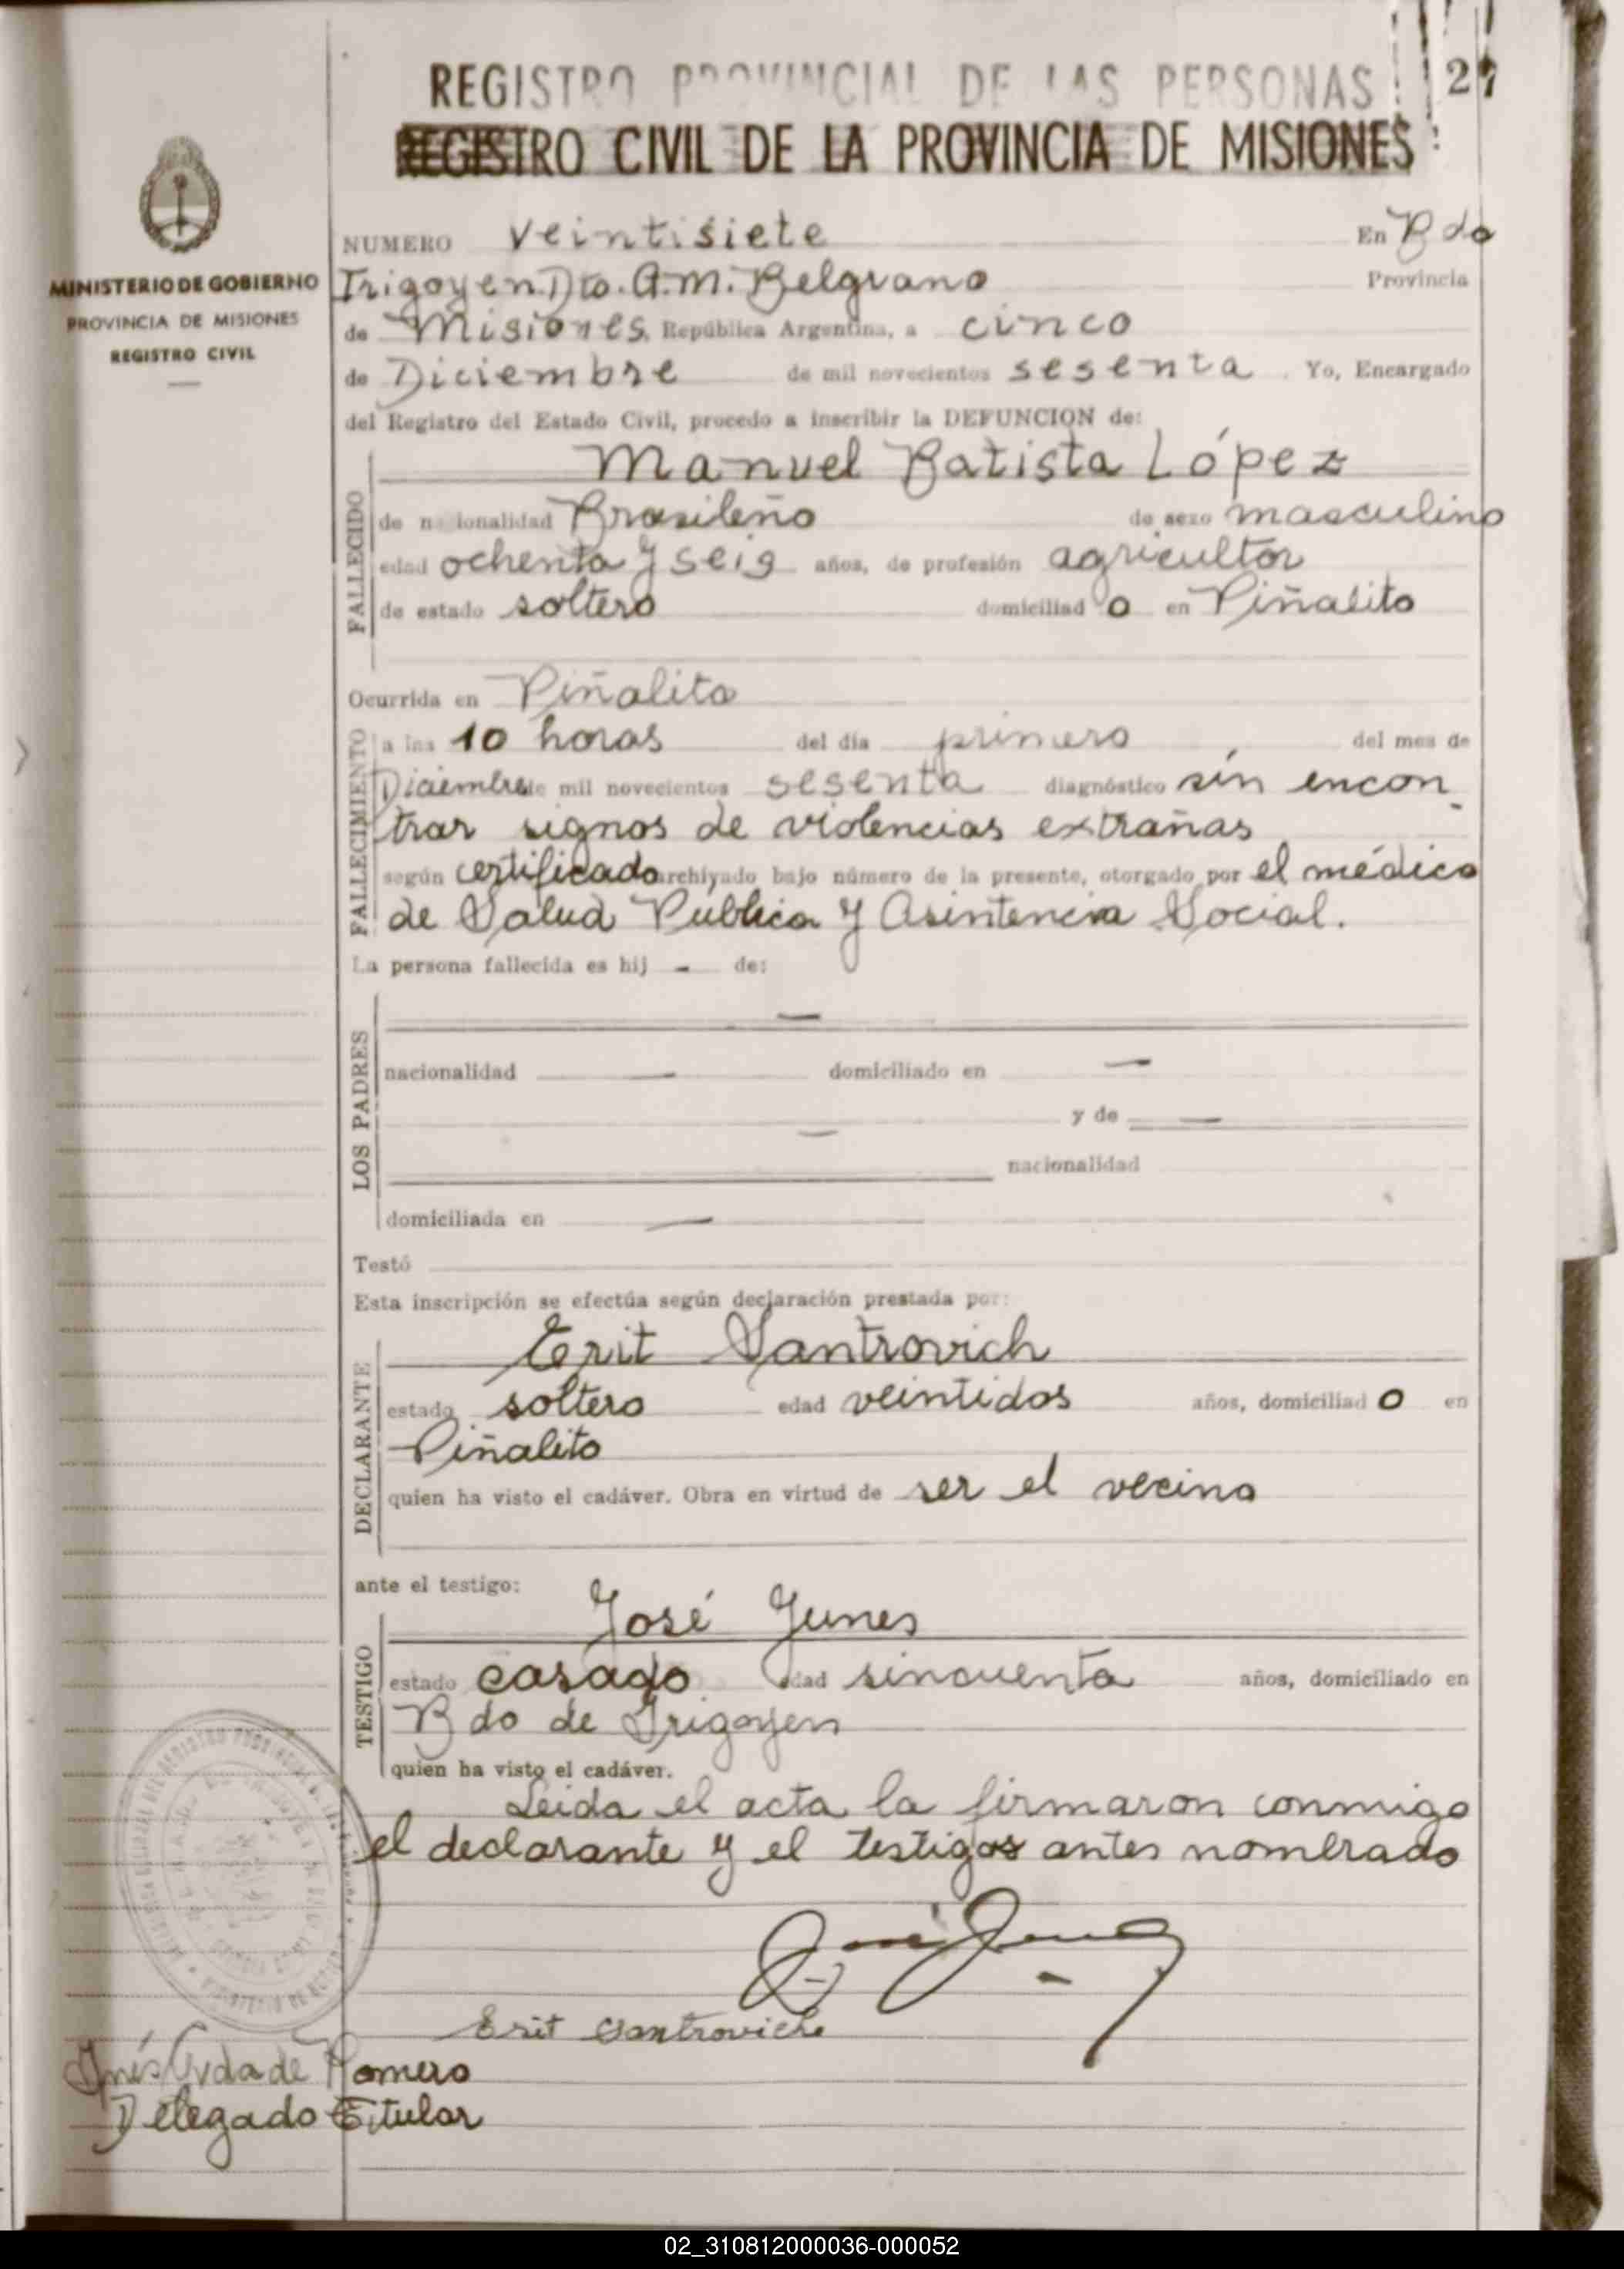 27
REGISTRO PROVINCIAL DE LAS PERSONAS
REGISTRO CIVIL DE LA PROVINCIA DE MISIONES
MINISTERIO DE GOBIERNO
PROVINCIA DE MISIONES
REGISTRO CIVIL
NUMERO veintisiete En Bdo
Irigoyen Dto. G.M. Belgrano Provincia
de Misiones, República Argentina, a cinco
de Diciembre de mil novecientos sesenta. Yo, Encargado
del Registro del Estado Civil, procedo a inscribir la DEFUNCION de:
Manuel Batista López
FALLECIDO
de nacionalidad Brasileño de sexo masculino
edad ochenta y seis años, de profesión agricultor
de estado soltero domiciliado en Piñalito
Ocurrida en Piñalito
FALLECIMIENTO
a las 10 horas del día primero del mes de
Diciembre de mil novecientos sesenta diagnóstico sin encon
trar signos de violencias extrañas
según certificado archivado bajo número de la presente, otorgado por el médico
de Salud Pública y Asintencia Social.
La persona fallecida es hij - de:
LOS PADRES
—
nacionalidad — domiciliado en —
— y de —
nacionalidad
domiciliada en —
Testó
Esta inscripción se efectúa según declaración prestada por:
DECLARANTE
Erit Santrovich
estado soltero edad veintidos años, domiciliado en
Piñalito
quien ha visto el cadáver. Obra en virtud de ser el vecino
ante el testigo:
TESTIGO
José Junes
estado casado edad sincuenta años, domiciliado en
Bdo de Irigoyen
quien ha visto el cadáver.
Leida el acta la firmaron conmigo
el declarante y el testigos antes nombrado
Erit Santrovich
Inés Vda de Romero
Delegado Titular
02_310812000036-000052